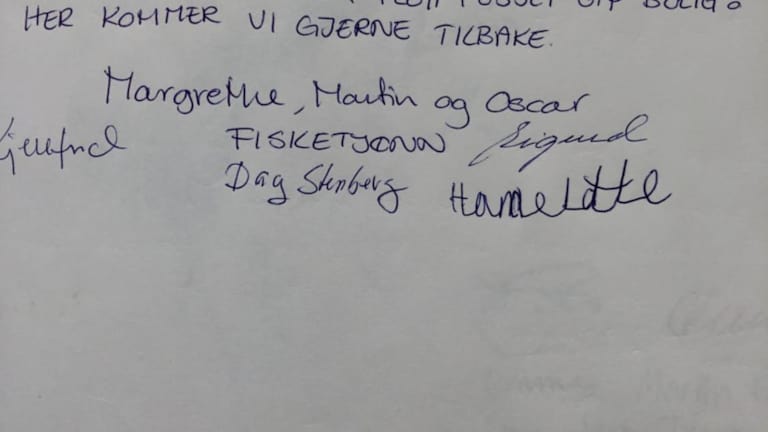 HER KOMMER VI GJERNE TILBAKE.
Margrethe, Martin og Oscar
FISKETJØNN Sigurd
Dag Stenberg Hanne Lotte